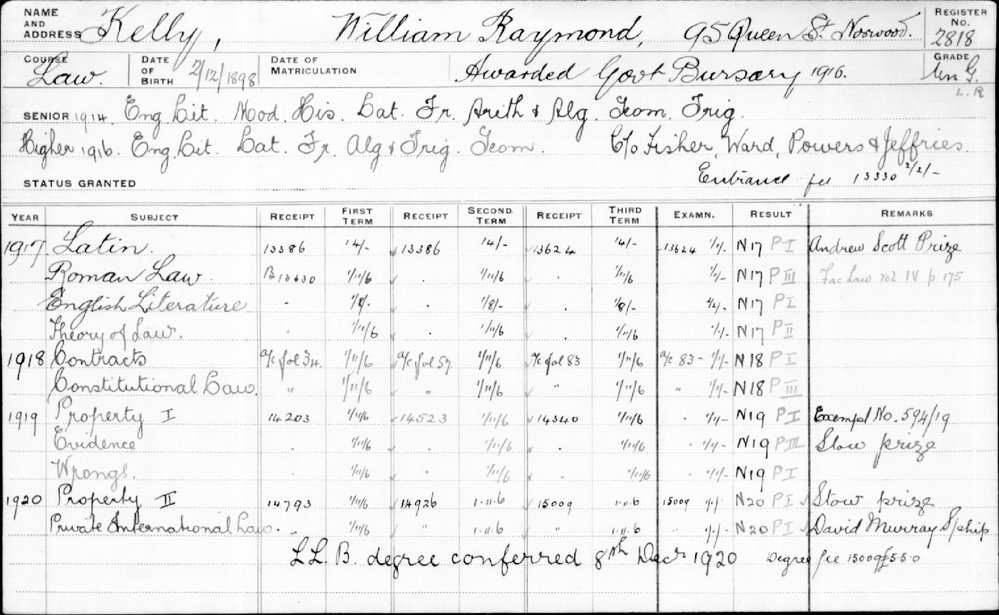 NAME AND ADDRESS Kelly, William Raymond, 95 Queen St Norwood. REGISTER No. 2818
COURSE Law. DATE OF BIRTH 2/12/1898 DATE OF MATRICULATION Awarded Govt Bursary 1916. GRADE
L.R
SENIOR 1914. Eng Lit. Mod. His. Lat. Fr. Arith & Alg. Geom. Trig.
Higher 1916. Eng. Lit. Lat. Fr. Alg & Trig. Geom. C/o Fisher, Ward, Powers & Jeffries.
STATUS GRANTED Entrance fee 13330 2/2/-
YEAR SUBJECT RECEIPT FIRST TERM RECEIPT SECOND TERM RECEIPT THIRD TERM EXAMN. RESULT REMARKS
1917 Latin. 13386 14/- 13386 14/- 13624 14/- 13624 1/1/- N17 P I Andrew Scott Prize
Roman Law. 1/11/6 1/11/6 1/11/6 1/1/- N17 P III Fac Law vol IV p 175
English Literature 1/8/- 1/8/- N17 P I
Theory of Law. 1/11/6 1/11/6 1/11/6 1/1/- N17 P II
1918 Contracts a/c fol 34. 1/11/6 a/c fol 57 1/11/6 a/c fol 83 1/11/6 a/c 83 - 1/1/- N18 P I
Constitutional Law. " 1/11/6 " 1/11/6 " 1/11/6 " 1/1/- N18 P III
1919 Property I 14203 1/11/6 14523 1/11/6 14340 1/11/6 1/1/- N19 P I Exempl No. 594/19
Evidence 1/11/6 1/11/6 1/11/6 1/1/- N19 P III Stow prize
Wrongs. 1/11/6 1/11/6 1/11/6 1/1/- N19 P I
1920 Property II 14793 1/11/6 14926 1.11.6 15009 1.11.6 15009 1/1/- N20 P I Stow prize
Private International Law. " 1/11/6 " 1.11.6 " 1.11.6 " 1/1/- N20 P I David Murray S/ship
LL.B. degree conferred 8th Decr 1920 Degree fee 15009 £5.5.0